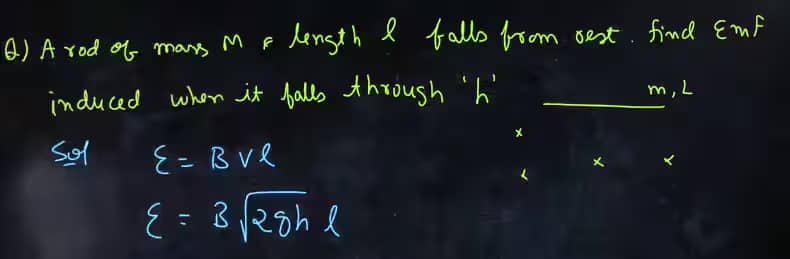 Q) A rod of mass M & length l falls from rest. find Emf
induced when it falls through 'h'
m, L
x
x x x
Sol ε = B v l
ε = B √2gh l